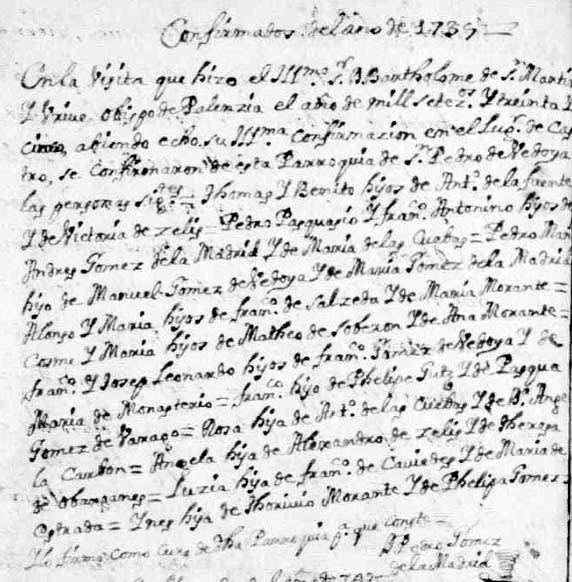 Confirmados del año de 1735
En la Visita que hizo el Illmo. Sr. D. Bartholome de Sn. Martin
Y Vrive obispo de Palenzia el año de mill setezs. Y treinta Y
cinco, abiendo echo su Illma. Confirmazion en el Lugr. de Cas
tro, se confirmaron de esta Parroquia de Sn. Pedro de Vedoya
las personas sigtes. = Thomas Y Benito hijos de Anto. de la fuente
Y de Victoria de zelis = Pedro Pasquasio Y franco. Antonino hijos de
Andres Gomez de la Madrid Y de Maria de las Cuebas = Pedro Man
hijo de Manuel Gomez de Vedoya Y de Maria Gomez de la Madrid
Alonso Y Maria hijos de franco. de Salzeda Y de Maria Morante =
Cosme Y Maria hijos de Matheo de Soberon Y de Ana Morante =
franco. Y Josep Leonardo hijos de franco. Gomez de Vedoya Y de
Maria de Monasterio = franco. hijo de Phelipe Gutz Y de Pasqua
Gomez de = Rosa hija de Anto. de las Cuebas Y de Da. Ange
la = Angela hija de Alexandro de zelis Y de theresa
de = Luzia hija de franco. de Caviedes Y de Maria de
estrada = Ynes hija de thorivio Morante Y de Phelipa Gomez =
Y lo firme como Cura de dha Parroquia pa. que conste =
D. Pedro Gomez
de la Madrid